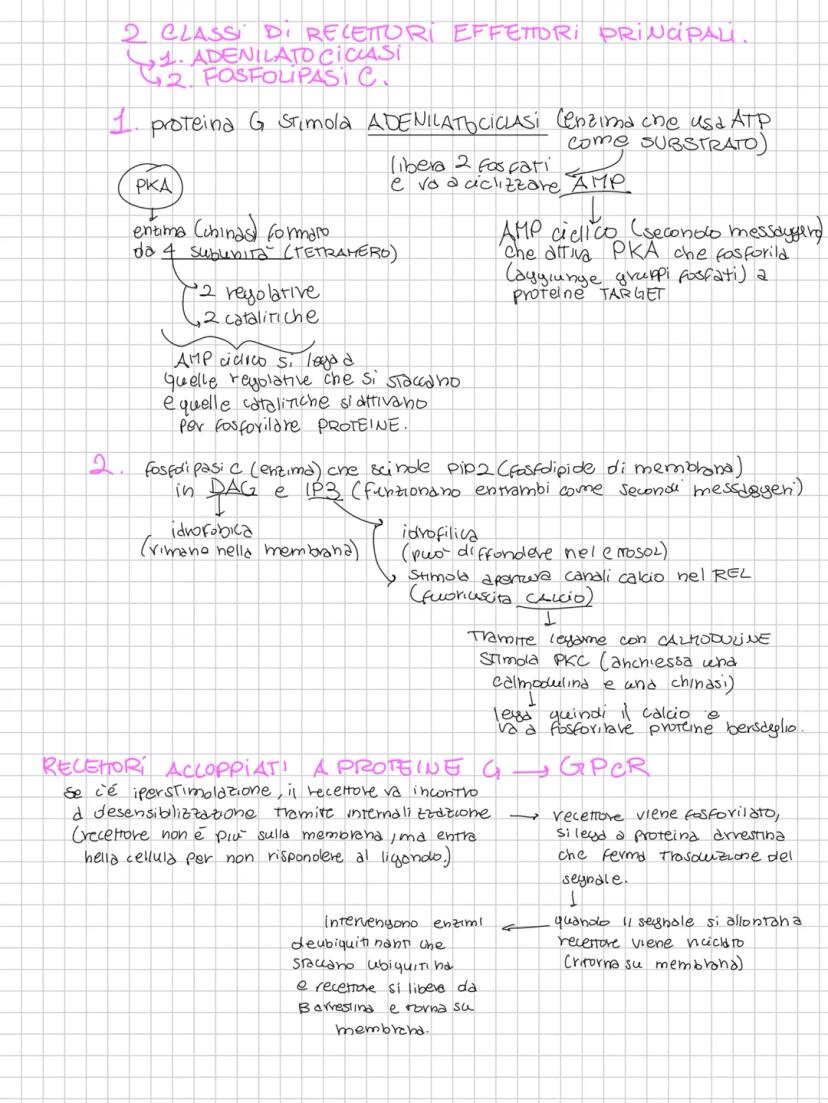 2 CLASSI DI RECETTORI EFFETTORI PRINCIPALI.
1. ADENILATO CICLASI
2. FOSFOLIPASI C.
1. proteina G stimola ADENILATOCICLASI (enzima che usa ATP
come SUBSTRATO)
libera 2 fosfati
e va a ciclizzare AMP
PKA
enzima (chinasi) formato
da 4 subunità (TETRAMERO)
2 regolative
2 catalitiche
AMP ciclico si lega a
quelle regolative che si staccano
e quelle catalitiche si attivano
per fosforilare PROTEINE.
AMP ciclico (secondo messaggero)
che attiva PKA che fosforila
(aggiunge gruppi fosfati) a
proteine TARGET
2. fosfolipasi C (enzima) che scinde PIP2 (fosfolipide di membrana)
in DAG e IP3 (funzionano entrambi come secondi messaggeri)
idrofobica
(rimane nella membrana)
idrofilica
(può diffondere nel citosol)
stimola apertura canali calcio nel REL
(fuoriuscita CALCIO)
Tramite legame con CALMODULINE
stimola PKC (anch'essa una
calmodulina e una chinasi)
lega quindi il calcio e
va a fosforilare proteine bersaglio.
RECETTORI ACCOPPIATI A PROTEINE G → GPCR
se c'é iperstimolazione, il recettore va incontro
a desensibilizzazione tramite internalizzazione
(recettore non è più sulla membrana, ma entra
nella cellula per non rispondere al ligando.)
→ recettore viene fosforilato,
si lega a proteina arrestina
che ferma trasduzione del
segnale.
quando il segnale si allontana
recettore viene riciclato
(ritorna su membrana)
Intervengono enzimi
deubiquitinanti che
staccano ubiquitina
e recettore si libera da
Barrestina e torna su
membrana.